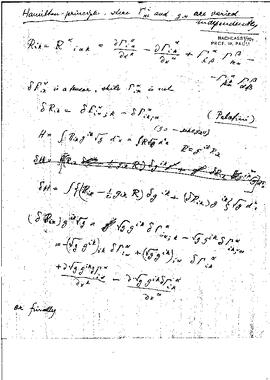 Hamilton-principle, where Γ^α_{ik} and g_{ik} are varied
independently
NACHLASS
PROF. W. PAULI
R_{ik} = R^α_{iαk} = ∂Γ^α_{iα}/∂x^k − ∂Γ^α_{ik}/∂x^α + Γ^α_{kβ} Γ^β_{iα}
δΓ^α_{ik} is a tensor, while Γ^α_{ik} is not
(Palatini)
δR_{ik} = δΓ^α_{iα;k} − δΓ^α_{ik;α}
H = ∫ R_{ik} g^{ik} √g d⁴x = ∫ R √g d⁴x
R = g^{ik} R_{ik}
δH = ∫ {(R_{ik} − ½ g_{ik} R) δg^{ik} + (δR_{ik}) g^{ik}} √g d⁴x
(δR_{ik}) g^{ik} √g = √g g^{ik} δΓ^α_{iα;k} − √g g^{ik} δΓ^α_{ik;α}
= −(√g g^{ik})_{;k} δΓ^α_{iα} + (√g g^{ik})_{;α} δΓ^α_{ik}
+ ∂√g g^{ik} δΓ^α_{iα}/∂x^k − ∂√g g^{ik} δΓ^α_{ik}/∂x^α
or finally